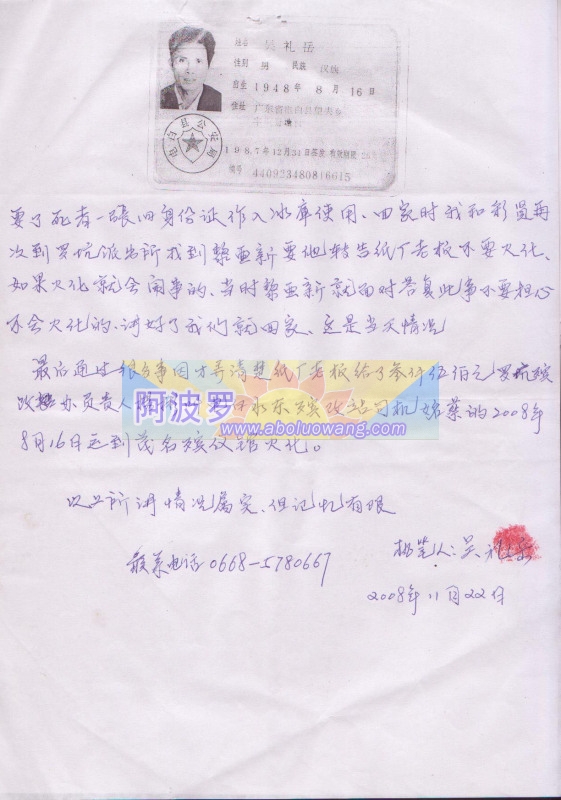 姓名 吴礼岳
性别 男 民族 汉族
出生 1948年8月16日
住址 广东省电白县
电白县公安局
1987年12月31日签发 有效期限20年
编号 440923480816615
要了死者一张旧身份证作入冰库使用、回家时我和彩贤再
次到罗坑派出所找到黎亜新要他转告纸厂老板不要火化、
如果火化就会闹事的、当时黎亜新就面对答复此事不要担心
不会火化的、讲好了我们就回家、这是当天情况
最后通过很多事因才弄清楚纸厂老板给了叁仟伍佰元罗坑殡
改办员贵人 水东殡改站司机 蔡的2008年
8月16日运到茂名殡仪馆火化。
以上所讲情况属实、但记忆有限
联系电话0668-5780667
执笔人:吴礼岳
2008年11月22日
阿波罗
www.aboluowang.com